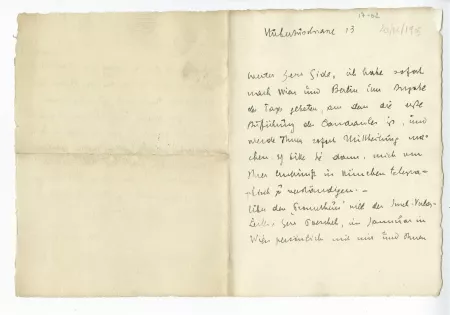 Hubertusstrasse 13
17-02
Herr Gide, ich habe sofort
nach Wien und Berlin um Angabe
des Tags gebeten, an dem die erste
Aufführung des Candaules ist, und
werde Ihnen sofort Mittheilung ma-
chen. Ich bitte Sie dann, mich von
Ihrer Ankunft in München telegra-
phisch zu verständigen. –
Über den will der Insel-Verlag
Herr Poeschel, im Januar in
Wien persönlich mit mir und Ihnen